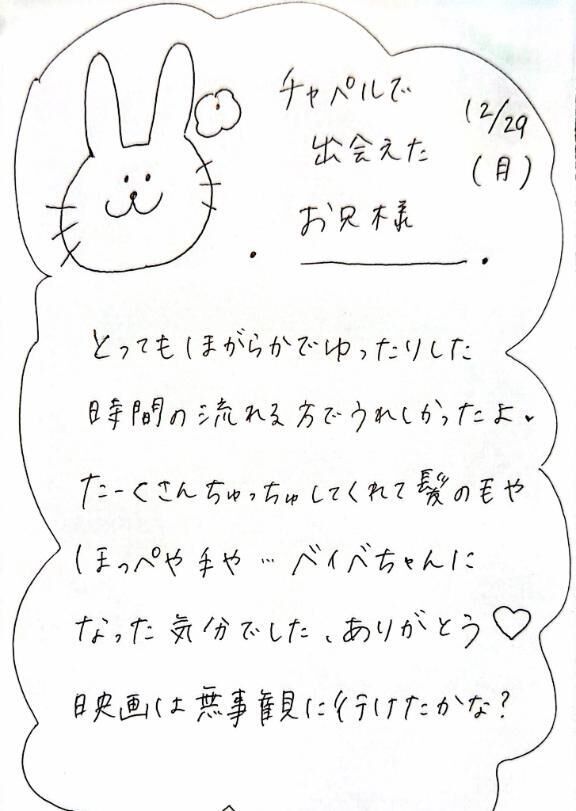 チャペルで
出会えた
お兄様
12/29
(月)
とってもほがらかでゆったりした
時間の流れる方でうれしかったよ♥
たーくさんちゅっちゅしてくれて髪の毛や
ほっぺや手や…ベイベちゃんに
なった気分でした、ありがとう♡
映画は無事観に行けたかな?